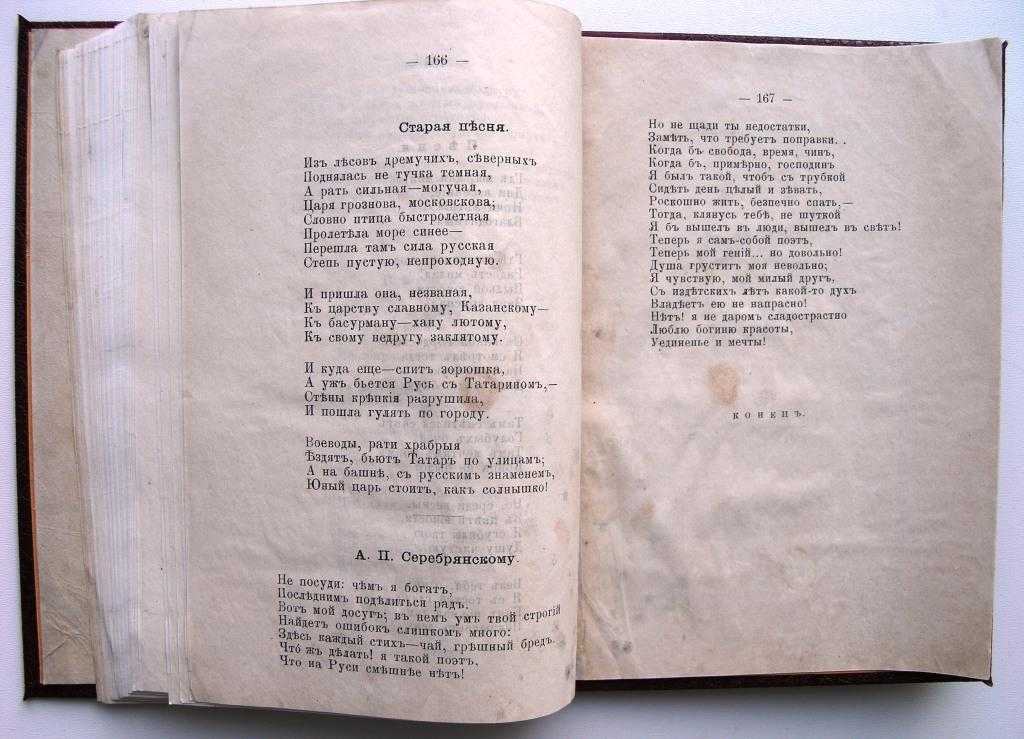 — 166 —
Старая пѣсня.
Изъ лѣсовъ дремучихъ, сѣверныхъ
Поднялась не тучка темная,
А рать сильная—могучая,
Царя грознова, московскова;
Словно птица быстролетная
Пролетѣла море синее—
Перешла тамъ сила русская
Степь пустую, непроходную.
И пришла она, незваная,
Къ царству славному, Казанскому—
Къ басурману—хану лютому,
Къ свому недругу заклятому.
И куда еще—спитъ зорюшка,
А ужъ бьется Русь съ Татариномъ,—
Стѣны крѣпкія разрушила,
И пошла гулять по городу.
Воеводы, рати храбрыя
Ѣздятъ, бьютъ Татаръ по улицамъ;
А на башнѣ, съ русскимъ знаменемъ,
Юный царь стоитъ, какъ солнышко!
А. П. Серебрянскому.
Не посуди: чѣмъ я богатъ,
Послѣднимъ подѣлиться радъ.
Вотъ мой досугъ; въ немъ умъ твой строгій
Найдетъ ошибокъ слишкомъ много:
Здѣсь каждый стихъ—чай, грѣшный бредъ.
Что́ жъ дѣлать! я такой поэтъ,
Что на Руси смѣшнѣе нѣтъ!
— 167 —
Но не щади ты недостатки,
Замѣть, что требуетъ поправки. .
Когда бъ свобода, время, чинъ,
Когда бъ, примѣрно, господинъ
Я былъ такой, чтобъ съ трубкой
Сидѣть день цѣлый и зѣвать,
Роскошно жить, безпечно спать,—
Тогда, клянусь тебѣ, не шуткой
Я бъ вышелъ въ люди, вышелъ въ свѣтъ!
Теперь я самъ-собой поэтъ,
Теперь мой геній... но довольно!
Душа груститъ моя невольно;
Я чувствую, мой милый другъ,
Съ издѣтскихъ лѣтъ какой-то духъ
Владѣетъ ею не напрасно!
Нѣтъ! я не даромъ сладострастно
Люблю богиню красоты,
Уединенье и мечты!
КОНЕЦЪ.